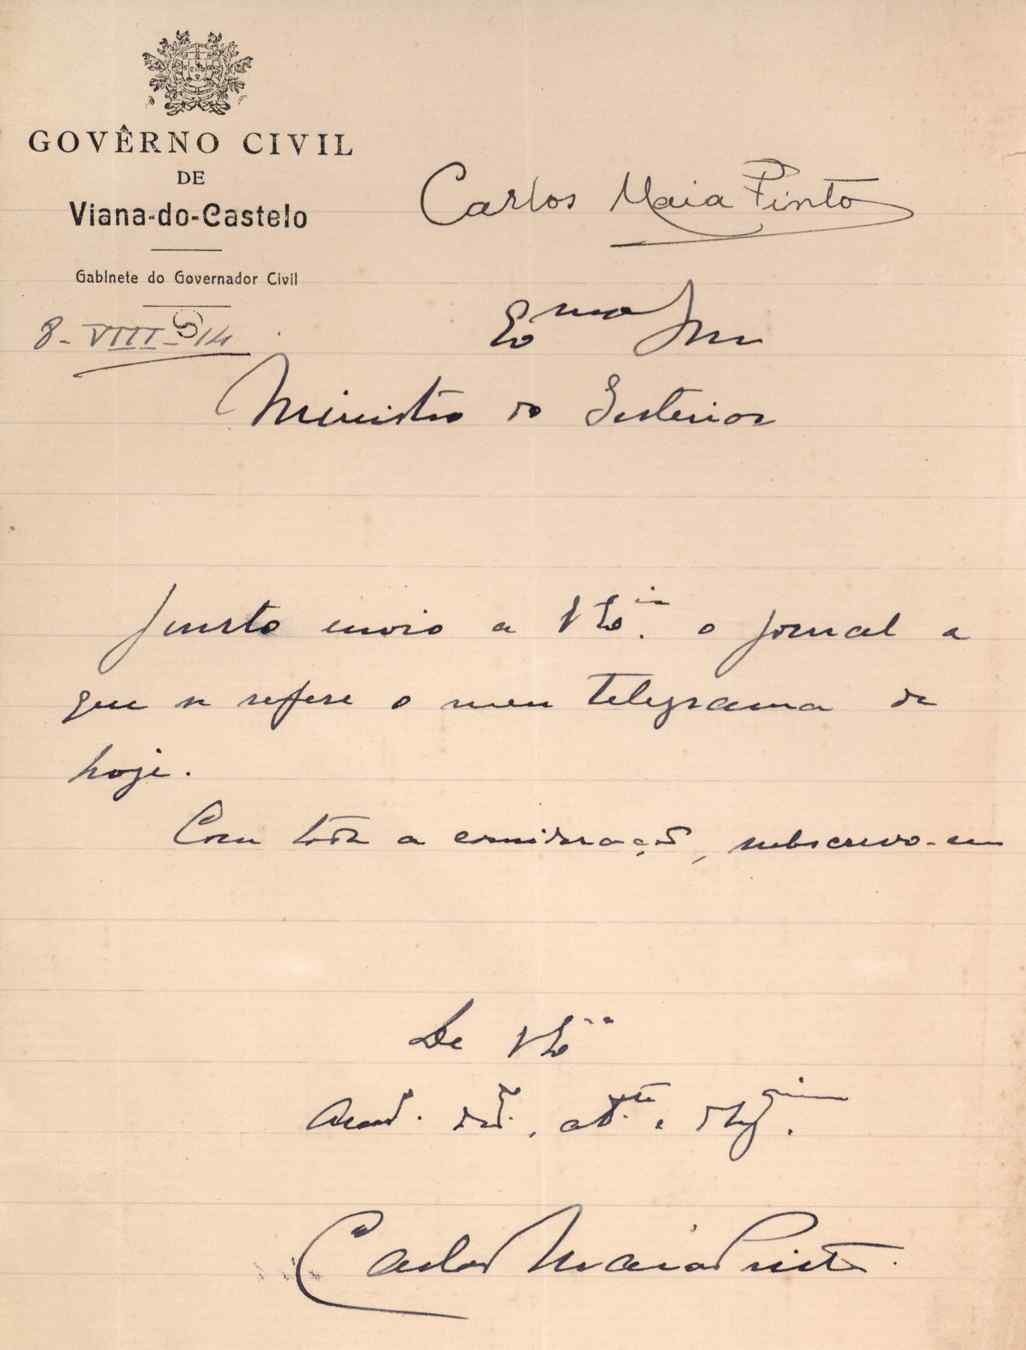 GOVÊRNO CIVIL
DE
Viana-do-Castelo
Gabinete do Governador Civil
8-VIII-914
Carlos Maia Pinto
Exmo Snr
Ministro do Interior
Junto envio a V Exia. o jornal a
que se refere o meu telegrama de
hoje.
Com toda a consideração, subscrevo-me
De V Exa
atto e obgmo.
Carlos Maia Pinto